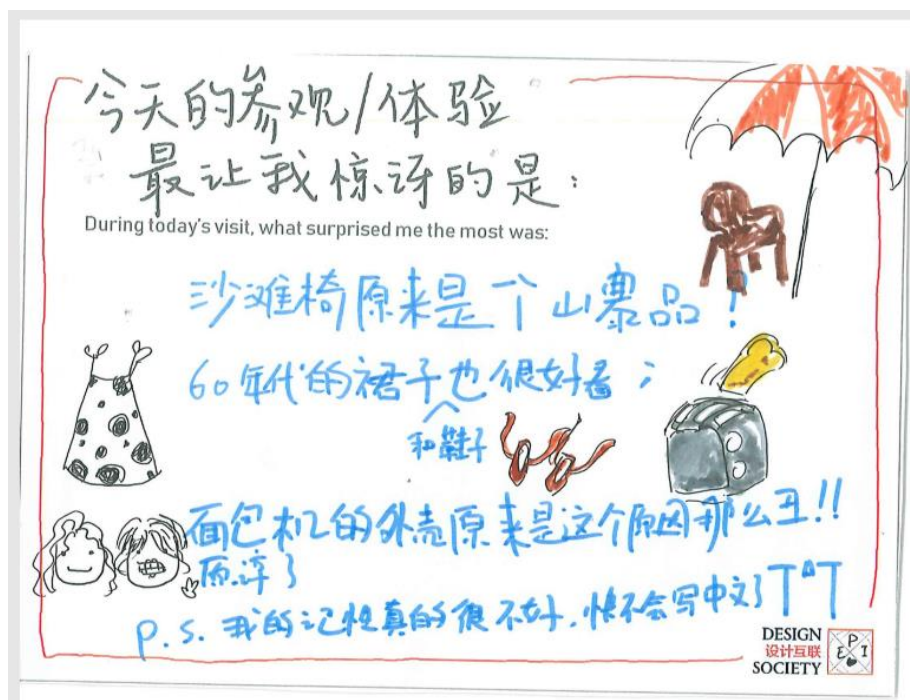 今天的参观/体验
最让我惊讶的是:
During today's visit, what surprised me the most was:
沙滩椅原来是个山寨品!
60年代的裙子也很好看;
和鞋子
面包机的外壳原来是这个原因那么丑!!
原谅了
p.s. 我的记性真的很不好,快不会写中文了 TAT
DESIGN
设计互联
SOCIETY